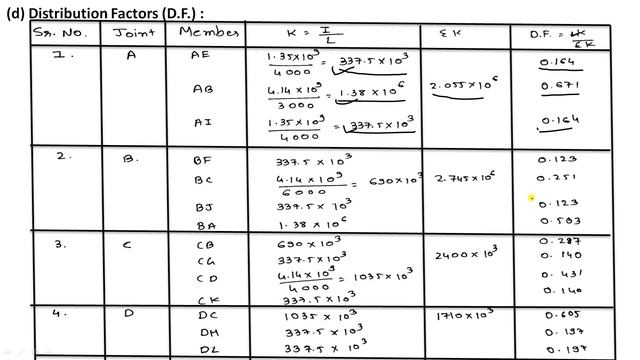 (d) Distribution Factors (D.F.) :
Sr. No. Joint Member K = I/L ΣK D.F. = K/ΣK
1. A AE 1.35x10⁹/4000 = 337.5 x 10³ 0.164
AB 4.14 x 10⁹/3000 = 1.38 x 10⁶ 2.055 x 10⁶ 0.671
AI 1.35 x 10⁹/4000 = 337.5 x 10³ 0.164
2. B. BF 337.5 x 10³ 0.123
BC 4.14 x 10⁹/6000 = 690 x 10³ 2.745 x 10⁶ 0.251
BJ 337.5 x 10³ 0.123
BA 1.38 x 10⁶ 0.503
3. C CB 690 x 10³ 0.287
CG 337.5 x 10³ 2400 x 10³ 0.140
CD 4.14 x 10⁹/4000 = 1035 x 10³ 0.431
CK 337.5 x 10³ 0.140
4. D DC 1035 x 10³ 1710 x 10³ 0.605
DH 337.5 x 10³ 0.197
DL 337.5 x 10³ 0.197